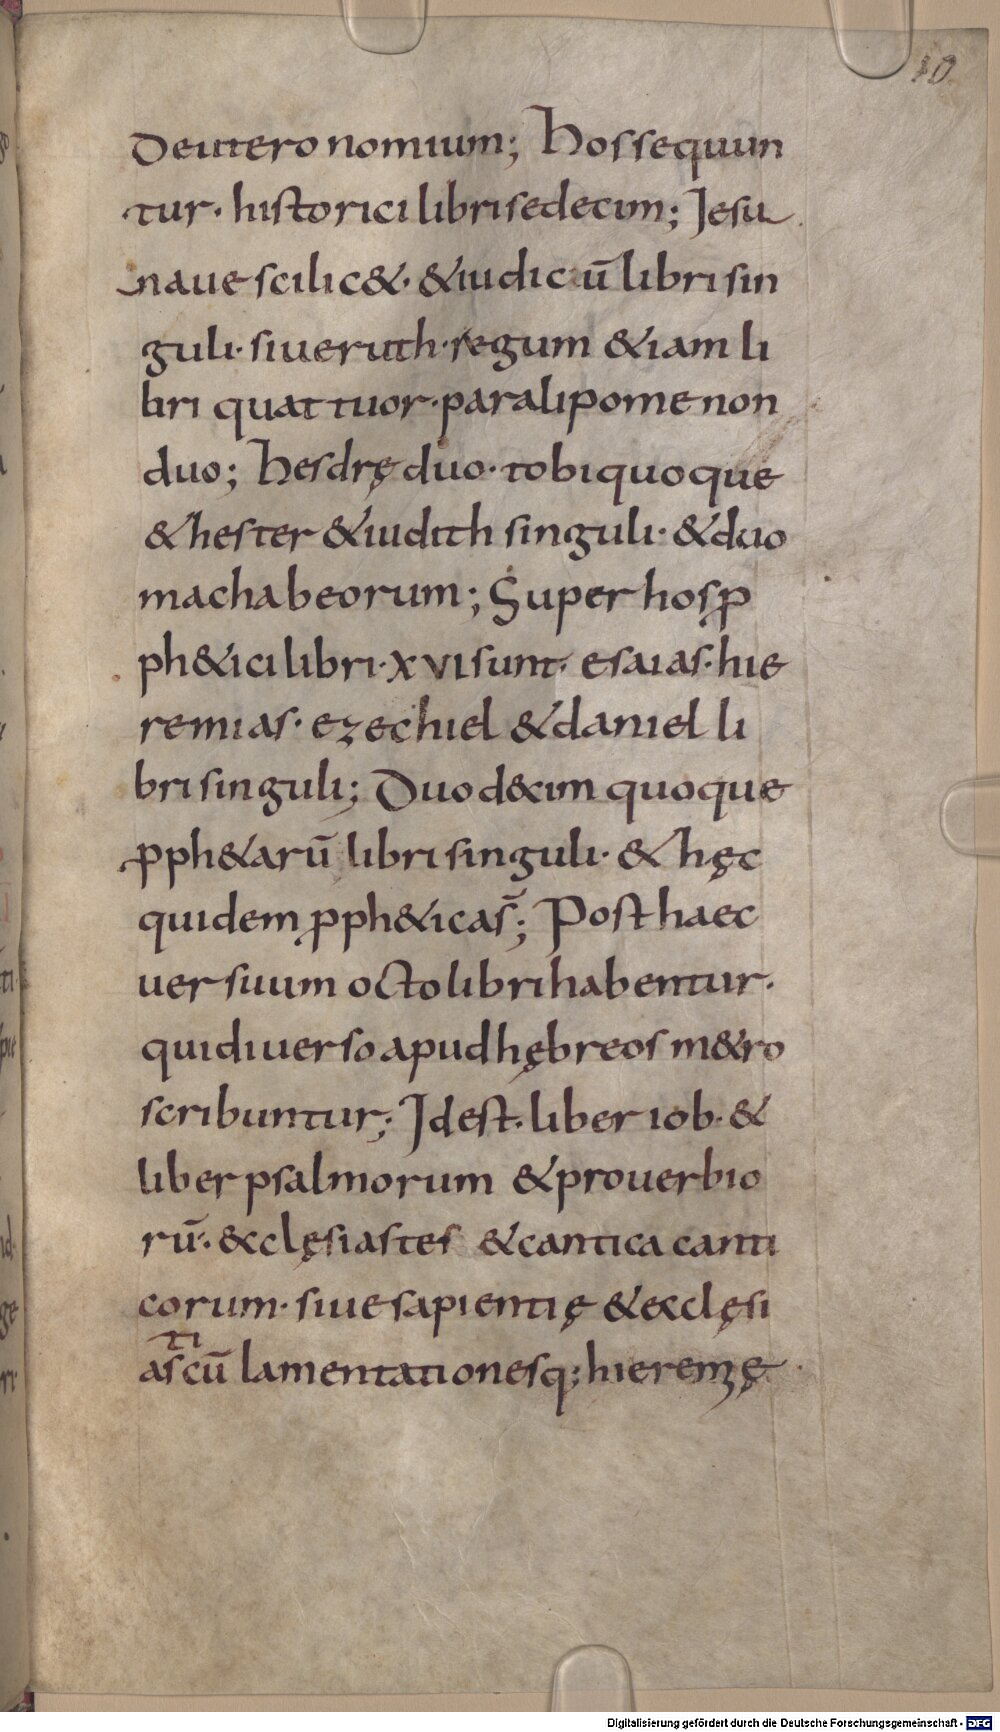 10
Deuteronomium; Hos sequun
tur· historici libri sedecim; Jesu
naue scilic&· & iudicū libri sin
guli· siue ruth· regum & iam li
bri quattuor· paralipomenon
duo; Hesdrę duo· tobi quoque
& hester & iudith singuli· & duo
machabeorum; Super hos ꝓ
ph&ici libri· xvi sunt· esaias· hie
remias· ezechiel & daniel li
bri singuli; Duod&cim quoque
ꝓph&arū libri singuli· & hęc
quidem ꝓph&icas̄; Post haec
uersuum octo libri habentur·
qui diuerso apud hębreos m&ro
scribuntur; Id est· liber iob· &
liber psalmorum & prouerbio
rū· &clęsiastes & cantica canti
corum· siue sapientię & ecclęsi
asticū lamentationesq; hieremię·
Digitalisierung gefördert durch die Deutsche Forschungsgemeinschaft - DFG